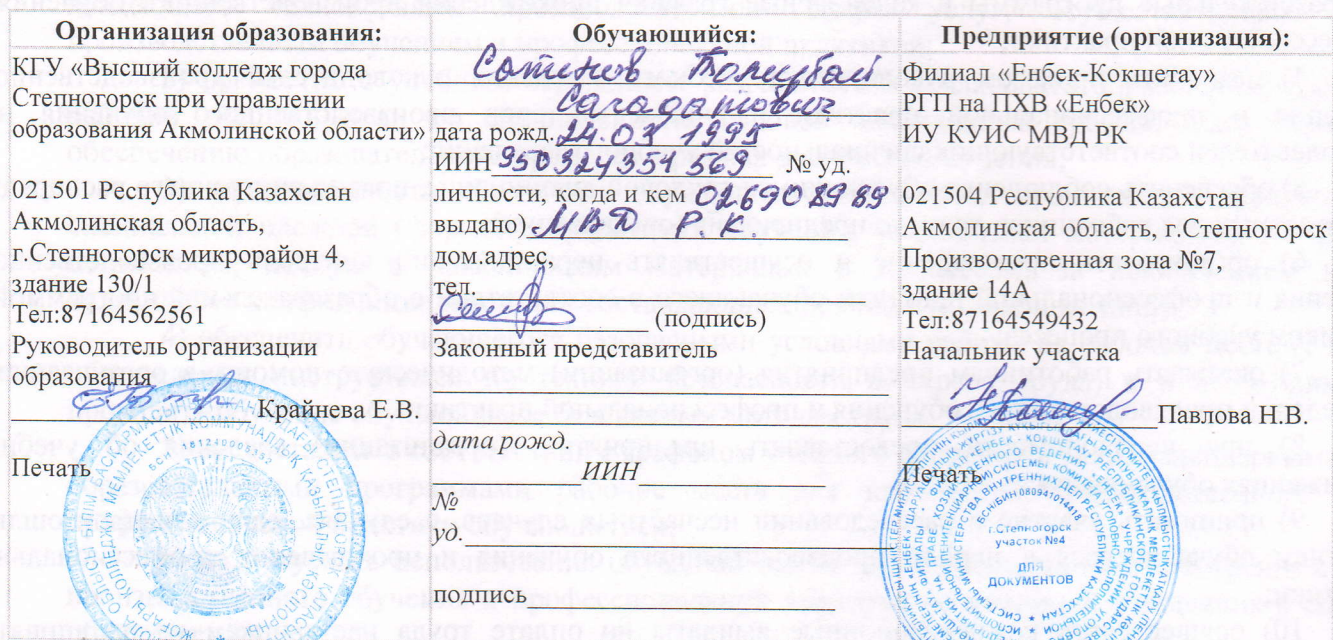 Организация образования:
КГУ «Высший колледж города
Степногорск при управлении
образования Акмолинской области»
021501 Республика Казахстан
Акмолинская область,
г.Степногорск микрорайон 4,
здание 130/1
Тел:87164562561
Руководитель организации
образования
Крайнева Е.В.
Печать
Обучающийся:
Сагадатович
дата рожд. 24.03 1995
ИИН 950324354563 № уд.
личности, когда и кем 026908989
выдано) МВД Р.К.
дом.адрес,
тел.
(подпись)
Законный представитель
дата рожд.
ИИН
№
уд.
подпись
Предприятие (организация):
Филиал «Енбек-Кокшетау»
РГП на ПХВ «Енбек»
ИУ КУИС МВД РК
021504 Республика Казахстан
Акмолинская область, г.Степногорск
Производственная зона №7,
здание 14А
Тел:87164549432
Начальник участка
Павлова Н.В.
Печать
г.Степногорск
участок №4
ДЛЯ
ДОКУМЕНТОВ